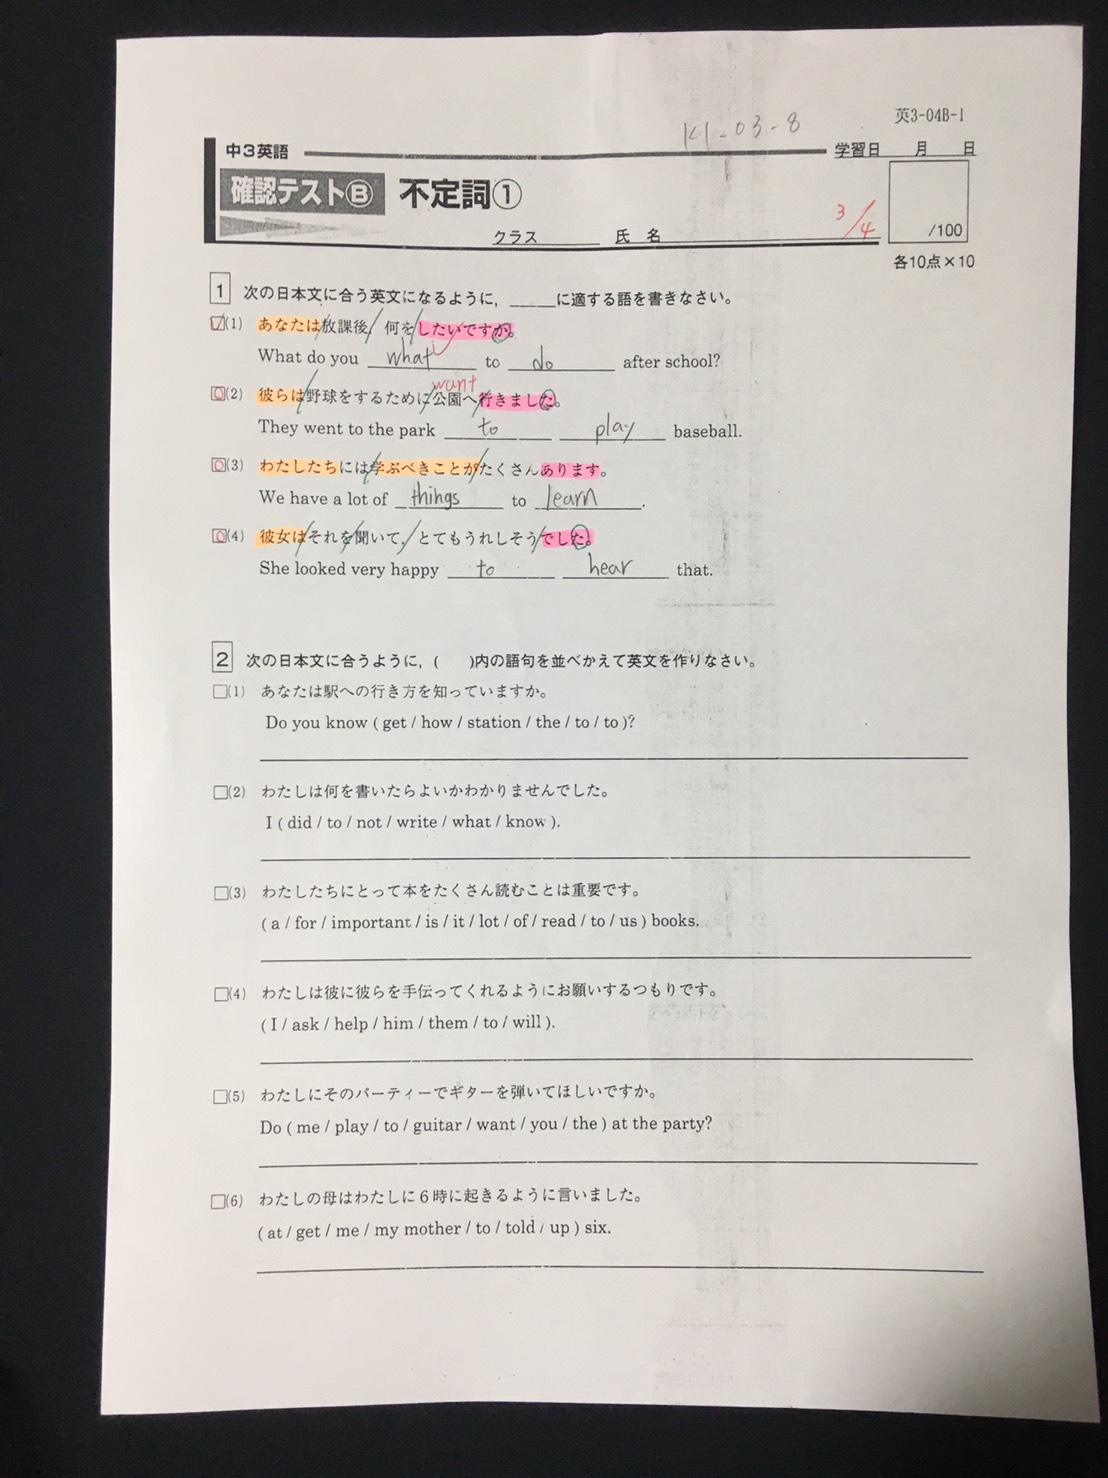 英3-04B-1
K1-03-8
中3英語 学習日 月 日
確認テストⒷ 不定詞①
3/4
/100
クラス 氏 名
各10点×10
1 次の日本文に合う英文になるように，_____に適する語を書きなさい。
(1) あなたは放課後，何をしたいですか。
What do you what to do after school?
want
(2) 彼らは野球をするために公園へ行きました。
They went to the park to play baseball.
(3) わたしたちには学ぶべきことがたくさんあります。
We have a lot of things to learn.
(4) 彼女はそれを聞いて，とてもうれしそうでした。
She looked very happy to hear that.
2 次の日本文に合うように，( )内の語句を並べかえて英文を作りなさい。
□(1) あなたは駅への行き方を知っていますか。
Do you know ( get / how / station / the / to / to )?
□(2) わたしは何を書いたらよいかわかりませんでした。
I ( did / to / not / write / what / know ).
□(3) わたしたちにとって本をたくさん読むことは重要です。
( a / for / important / is / it / lot / of / read / to / us ) books.
□(4) わたしは彼に彼らを手伝ってくれるようにお願いするつもりです。
( I / ask / help / him / them / to / will ).
□(5) わたしにそのパーティーでギターを弾いてほしいですか。
Do ( me / play / to / guitar / want / you / the ) at the party?
□(6) わたしの母はわたしに6時に起きるように言いました。
( at / get / me / my mother / to / told / up ) six.